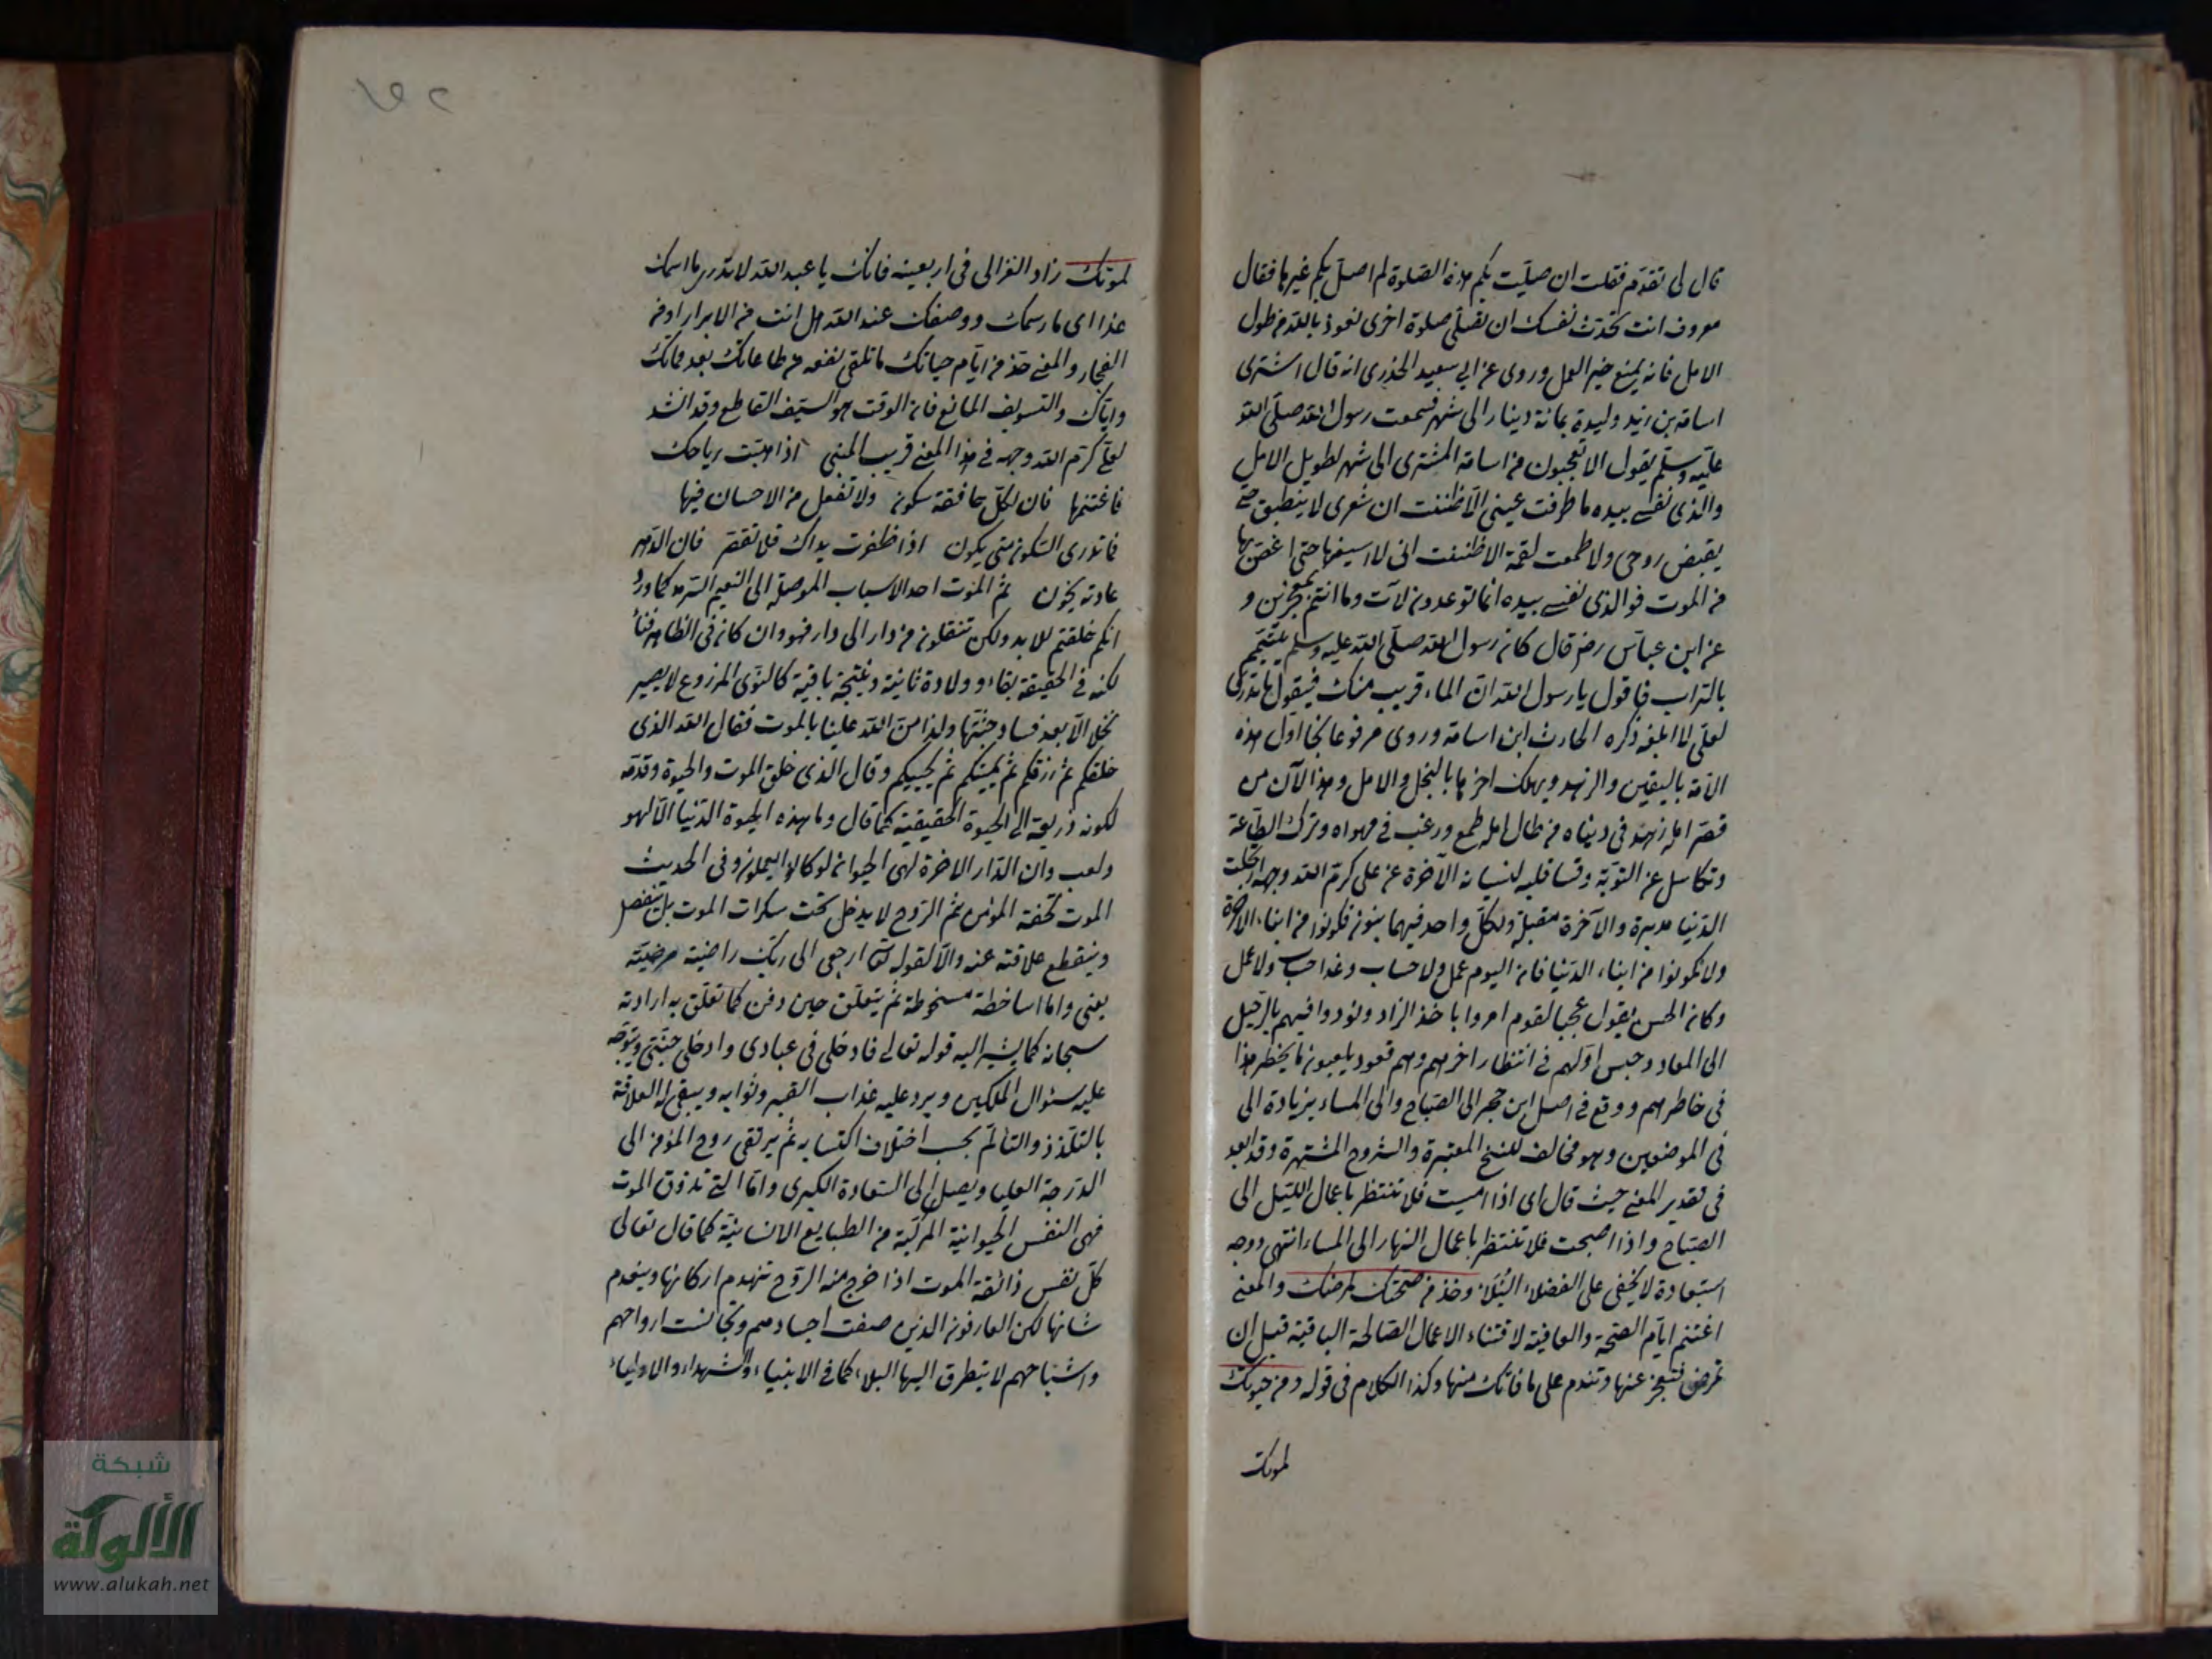 قال لى تقدم فقلت ان صليت بكم هذه الصلوة لم اصل بكم غيرها فقال
معروف انت تحدث نفسك ان تصلى صلوة اخرى نعوذ بالله من طول
الامل فانه يمنع خير العمل وروى عن ابى سعيد الخدرى انه قال اشترى
اسامة بن زيد وليدة بمائة دينار الى شهر فسمعت رسول الله صلى الله
عليه وسلم يقول الا تعجبون من اسامة المشترى الى شهر لطويل الامل
والذى نفسى بيده ما طرفت عينى الا ظننت ان شعرى لا ينطبق حتى
يقبض روحى ولا طعمت لقمة الا ظننت انى لا اسيغها حتى اغص بها
من الموت فوالذى نفسى بيده انما توعدون لآت وما انتم بمعجزين و
عن ابن عباس رض قال كان رسول الله صلى الله عليه وسلم يتيمم
بالتراب فاقول يا رسول الله ان الماء قريب منك فيقول ما تدرى
لعلى لا ابلغه ذكره الحارث ابن اسامة وروى مرفوعا نجا اول هذه
الامة باليقين والزهد ويهلك اخرها بالبخل والامل وهذا لان من
قصر امله زهد فى دنياه ومن طال امله طمع ورغب فى مهواه وترك الطاعة
وتكاسل عن التوبة وقسا قلبه لنسيانه الآخرة عن على كرم الله وجهه ارتحلت
الدنيا مدبرة والآخرة مقبلة ولكل واحد فيهما بنون فكونوا من ابناء الآخرة
ولا تكونوا من ابناء الدنيا فان اليوم عمل ولا حساب وغدا حساب ولا عمل
وكان الحسن يقول عجبا لقوم امروا باخذ الزاد ونودوا فيهم بالرحيل
الى المعاد وحبس اولهم فى انتظار اخرهم وهم قعود يلعبون ما يخطر هذا
فى خاطرهم ووقع فى اصل ابن حجر الى الصباح والى المساء بزيادة الى
فى الموضعين وهو مخالف للنسخ المعتبرة والشروح المشتهرة وقد ابعد
فى تقدير المعنى حيث قال اى اذا امسيت فلا تنتظر باعمال الليل الى
الصباح واذا اصبحت فلا تنتظر باعمال النهار الى المساء انتهى ووجه
استبعاده لا يخفى على الفضلاء النبلاء وخذ من صحتك لمرضك والمعنى
اغتنم ايام الصحة والعافية لاقتناء الاعمال الصالحة الباقية قبل ان
تمرض فتعجز عنها وتندم على ما فاتك منها وكذا الكلام فى قوله ومن حيوتك
لموتك
لموتك زاد الغزالى فى اربعينه فانك يا عبد الله لا تدرى ما اسمك
غدا اى ما رسمك ووصفك عند الله هل انت من الابرار او من
الفجار والمعنى خذ من ايام حياتك ما تلقى نفعه من طاعاتك بعد مماتك
واياك والتسويف المانع فان الوقت هو السيف القاطع وقد انشد
لعلى كرم الله وجهه فى هذا المعنى قريب المبنى اذا هبت رياحك
فاغتنمها فان لكل خافقة سكون ولا تغفل من الاحسان فيها
فما تدرى السكون متى يكون اذا ظفرت يداك فلا تقصر فان الدهر
عادته يخون ثم الموت احد الاسباب الموصلة الى النعيم السرمد كما ورد
انكم خلقتم للابد ولكن تنقلون من دار الى دار فهو وان كان فى الظاهر فناء
لكنه فى الحقيقة بقاء وولادة ثانية ونتيجة باقية كالنوى المزروع لا يصير
نخلا الا بعد فساد جثتها ولذا من الله علينا بالموت فقال الله الذى
خلقكم ثم رزقكم ثم يميتكم ثم يحييكم وقال الذى خلق الموت والحيوة وقدمه
لكونه ذريعة الى الحيوة الحقيقية كما قال وما هذه الحيوة الدنيا الا لهو
ولعب وان الدار الاخرة لهى الحيوان لو كانوا يعلمون وفى الحديث
الموت تحفة المؤمن ثم الروح لا يدخل تحت سكرات الموت بل ينفصل
وينقطع علاقته عنه والا لقوله تعالى ارجعى الى ربك راضية مرضية
يعنى واما ساخطة مسخوطة ثم يتعلق حين دفن كما تعلق به ارادته
سبحانه كما يشير اليه قوله تعالى فادخلى فى عبادى وادخلى جنتى ويتوجه
عليه سئوال الملكين ويرد عليه عذاب القبر وثوابه ويبقى له العلاقة
بالتلذذ والتألم بحسب اختلاف اكتسابه ثم يرتقى روح المؤمن الى
الدرجة العليا ويصل الى السعادة الكبرى واما التى تذوق الموت
فهى النفس الحيوانية المركبة من الطبايع الانسانية كما قال تعالى
كل نفس ذائقة الموت اذا خرج منه الروح تنهدم اركانها وينعدم
شانها لكن العارفون الذين صفت اجسادهم وتجانست ارواحهم
واشباحهم لا يتطرق اليها البلاء كما فى الانبياء والشهداء والاولياء
شبكة
الألوكة
www.alukah.net